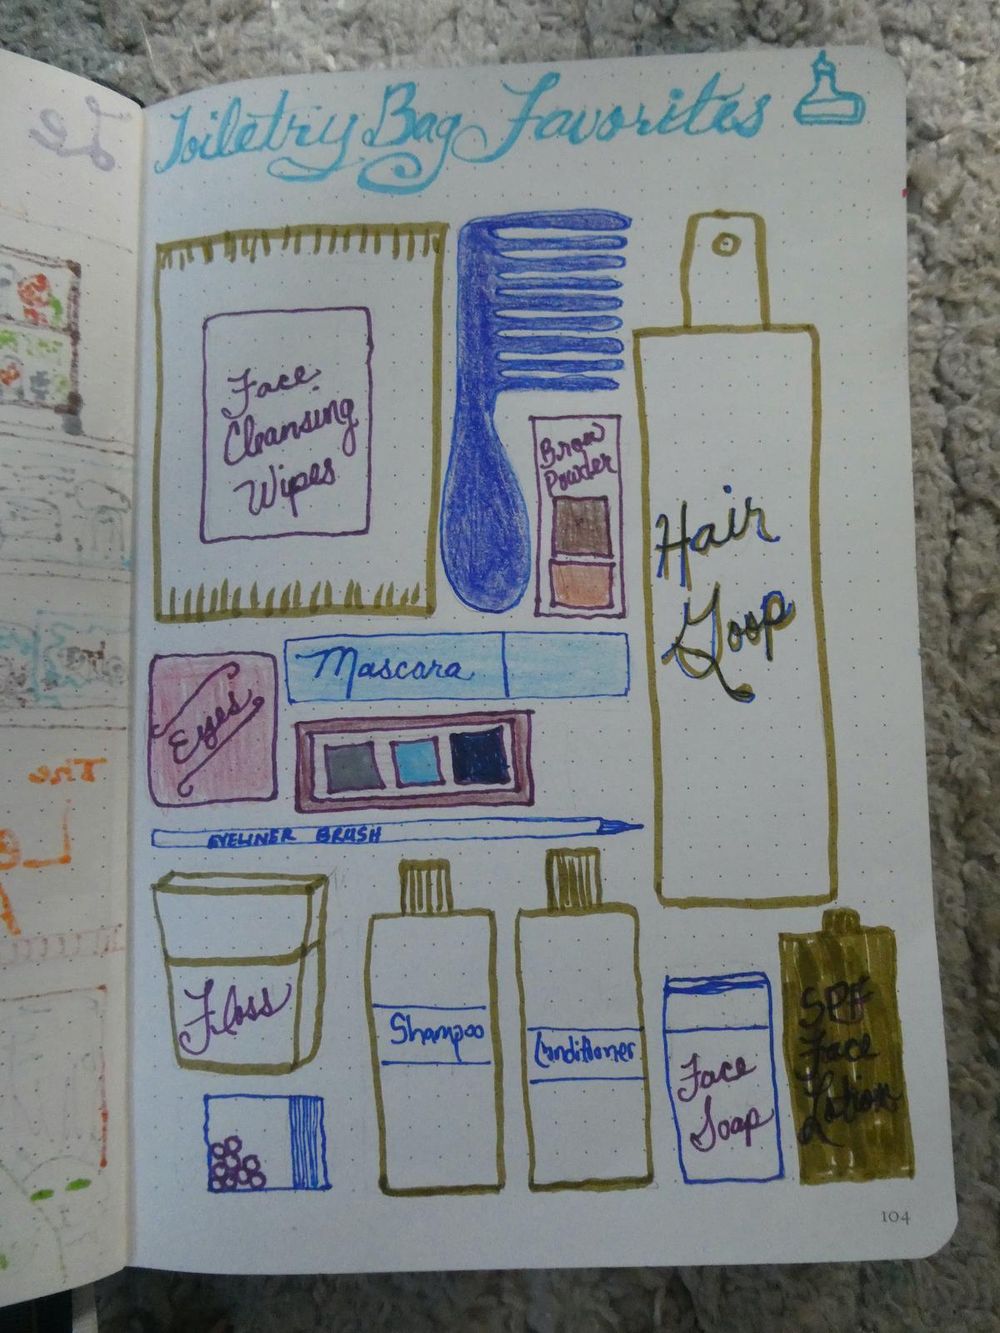 Toiletry Bag Favorites
Face
Cleansing
Wipes
Brow
Powder
Hair
Goop
Mascara
Eyes
EYELINER BRUSH
Floss
Shampoo
Conditioner
Face
Soap
SPF
Face
Lotion
104
The